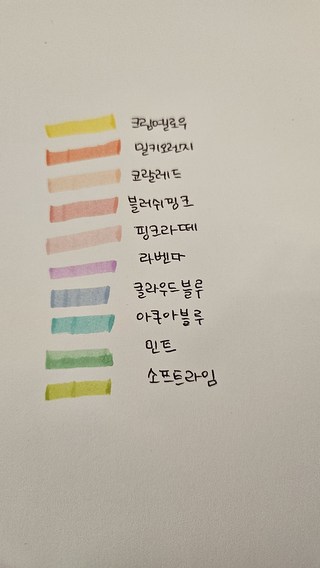 크림옐로우
밀키오렌지
코랄레드
블러쉬핑크
핑크라떼
라벤다
클라우드블루
아쿠아블루
민트
소프트라임